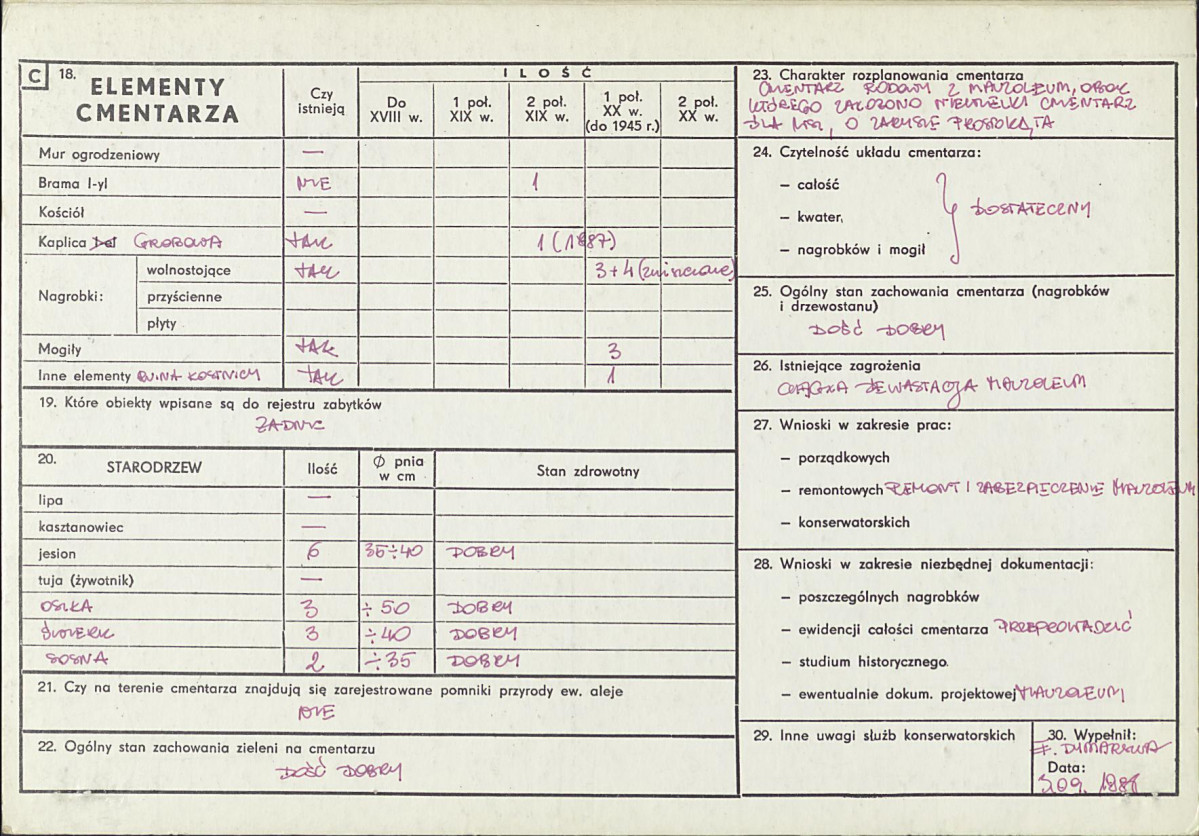 C 18. ELEMENTY CMENTARZA
Czy istnieją
ILOŚĆ
Do XVIII w.
1 poł. XIX w.
2 poł. XIX w.
1 poł. XX w. (do 1945 r.)
2 poł. XX w.
Mur ogrodzeniowy —
Brama I-yl NIE 1
Kościół —
Kaplica GROBOWA TAK 1 (1887)
Nagrobki:
wolnostojące TAK 3+4 (zniszczone)
przyścienne
płyty
Mogiły TAK 3
Inne elementy RUINA KOSTNICY TAK 1
19. Które obiekty wpisane są do rejestru zabytków
ŻADNE
20. STARODRZEW Ilość Ø pnia w cm Stan zdrowotny
lipa —
kasztanowiec —
jesion 6 35÷40 DOBRY
tuja (żywotnik) —
OSIKA 3 ÷50 DOBRY
ŚWIERK 3 ÷40 DOBRY
SOSNA 2 ÷35 DOBRY
21. Czy na terenie cmentarza znajdują się zarejestrowane pomniki przyrody ew. aleje
NIE
22. Ogólny stan zachowania zieleni na cmentarzu
DOŚĆ DOBRY
23. Charakter rozplanowania cmentarza
CMENTARZ RODOWY Z MAUZOLEUM, OBOK
KTÓREGO ZAŁOŻONO NIEWIELKI CMENTARZ
DLA WSI, O ZARYSIE PROSTOKĄTA
24. Czytelność układu cmentarza:
– całość
– kwater,
– nagrobków i mogił
DOSTATECZNY
25. Ogólny stan zachowania cmentarza (nagrobków
i drzewostanu)
DOŚĆ DOBRY
26. Istniejące zagrożenia
CIĄGŁA DEWASTACJA MAUZOLEUM
27. Wnioski w zakresie prac:
– porządkowych
– remontowych REMONT I ZABEZPIECZENIE MAUZOLEUM
– konserwatorskich
28. Wnioski w zakresie niezbędnej dokumentacji:
– poszczególnych nagrobków
– ewidencji całości cmentarza PRZEPROWADZIĆ
– studium historycznego
– ewentualnie dokum. projektowej MAUZOLEUM
29. Inne uwagi służb konserwatorskich
30. Wypełnił:
Data: